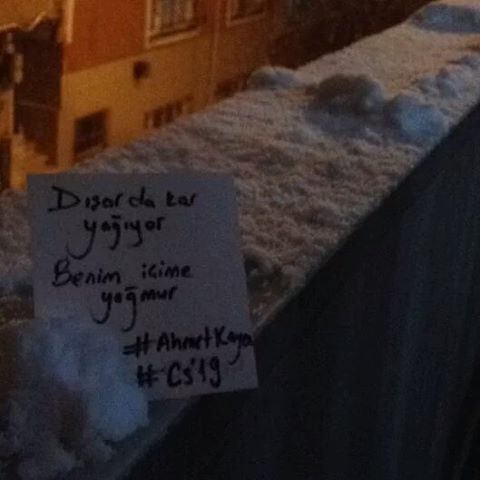 Dışarda kar
yağıyor
Benim içime
yağmur
#AhmetKaya
#Cs'19